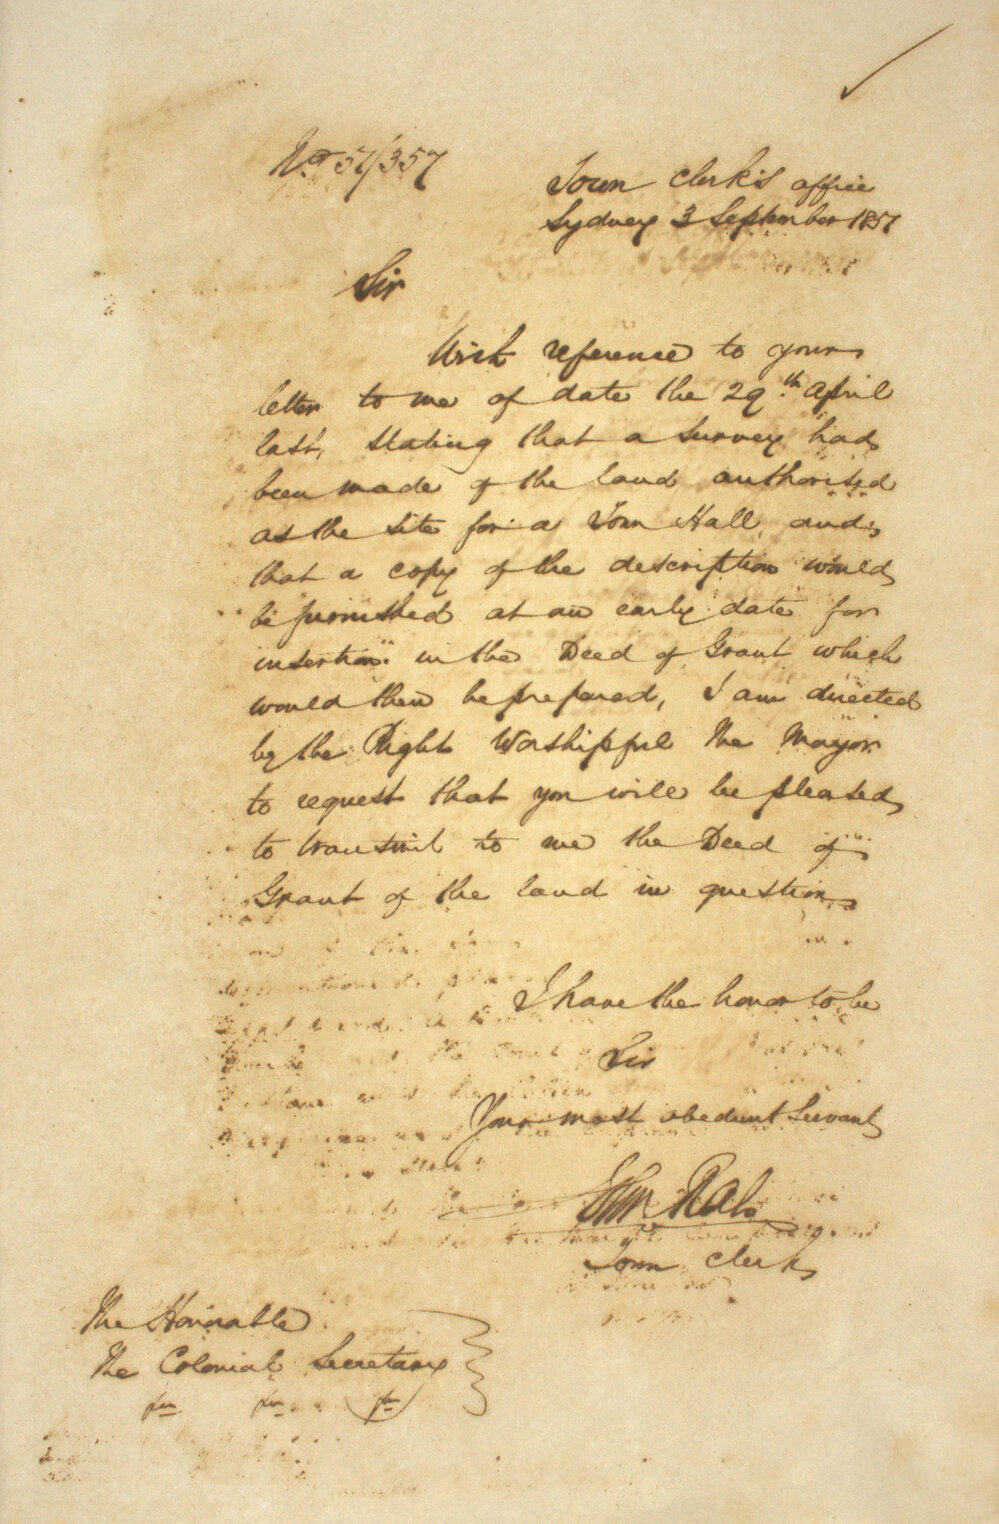 No 57/357
Town Clerk's Office
Sydney 3 September 1857
Sir
With reference to your
letter to me of date the 29th April
last, stating that a survey had
been made of the land authorised
as the site for a Town Hall, and
that a copy of the description would
be furnished at an early date for
insertion in the Deed of Grant which
would then be prepared, I am directed
by the Right Worshipful the Mayor
to request that you will be pleased
to transmit to me the Deed of
Grant of the land in question
I have the honor to be
Sir
Your most obedient Servant
John Rae
Town Clerk
The Honorable
The Colonial Secretary